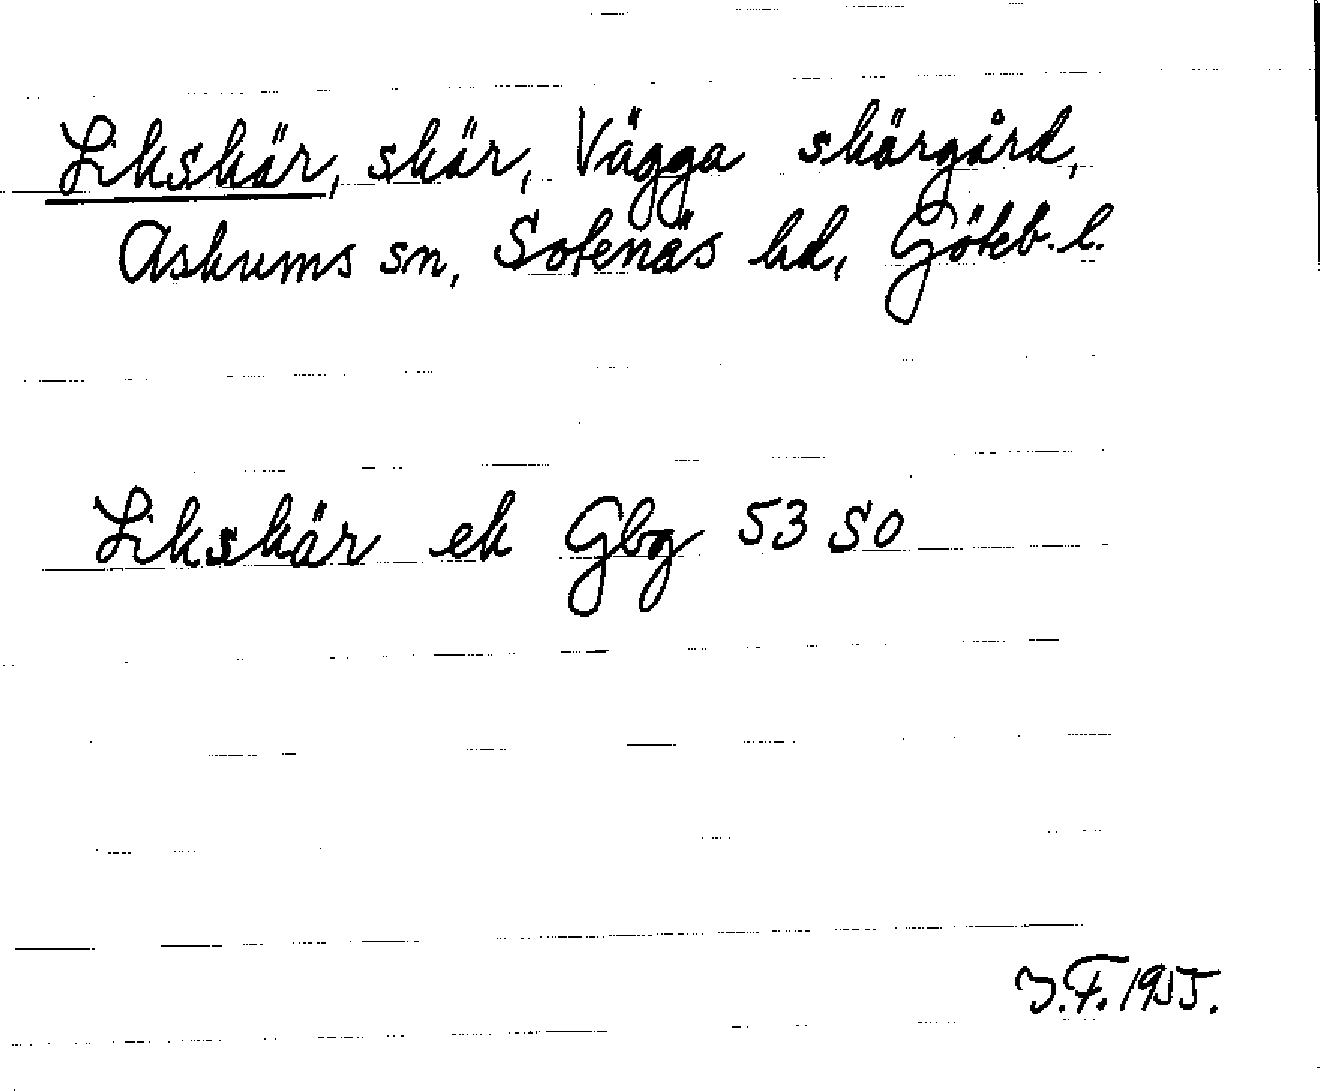 Likskär, skär, Vägga skärgård,
Askums sn, Sotenäs hd, Göteb. l.
Likskär ek Gbg 53 SO
J.F. 1955.